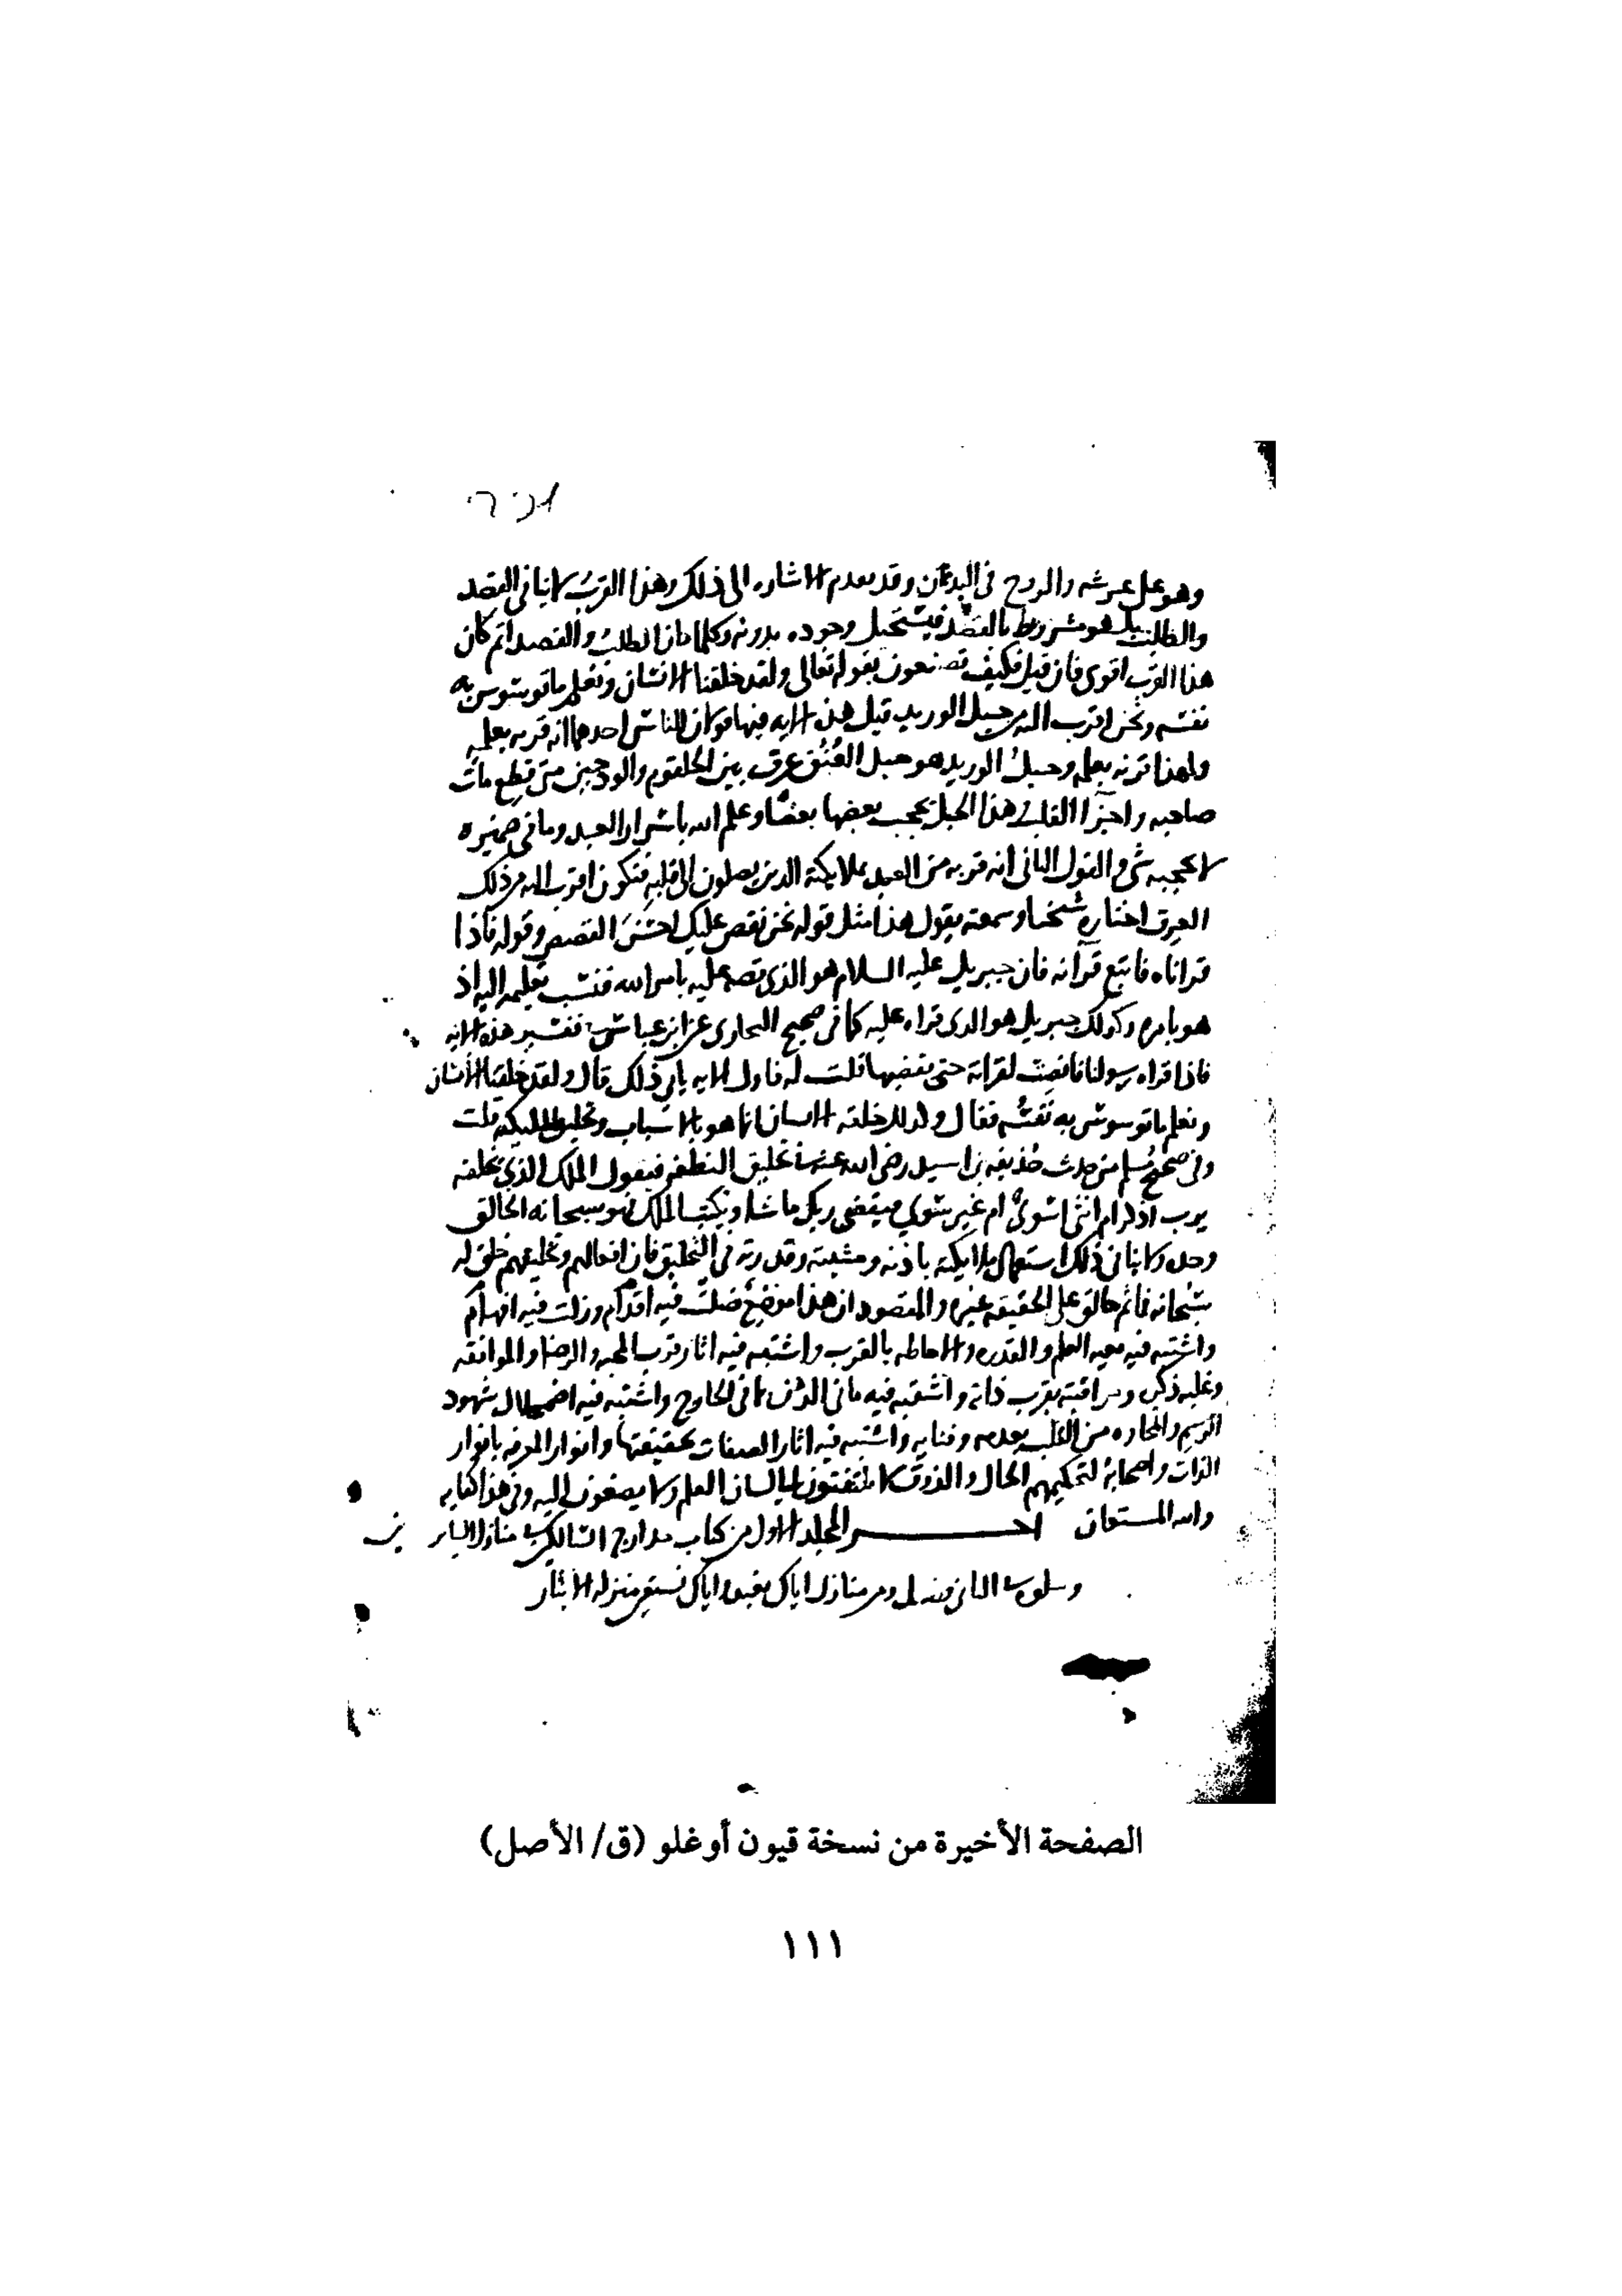 وهو على عرشه والروح في البدن وقد تقدم الاشاره الى ذلك وهذا القرب لا ينافي القصد
والطلب بل هو مشروط بالقصد فيستحيل وجوده بدونه وكلما كان الطلب والقصد اتم كان
هذا القرب اقوى فان قيل فكيف تصنعون بقوله تعالى ولقد خلقنا الانسان ونعلم ما توسوس به
نفسه ونحن اقرب اليه من حبل الوريد قيل هذه الايه فيها قولان للناس احدهما انه قربه بعلمه
ولهذا قرنه بعلم وحبل الوريد هو حبل العنق عرق بين الحلقوم والودجين متى قطع مات
صاحبه واجزا القلب هذا الحبل يحجب بعضها بعضا وعلم الله باسرار العبد وما في ضميره
لا يحجبه شي والقول الثاني انه قربه من العبد بملايكته الذين يصلون الى قلبه فتكون اقرب اليه من ذلك
العرق اختاره شيخنا وسمعته يقول هذا مثل قوله نحن نقص عليك احسن القصص وقوله فاذا
قراناه فاتبع قرآنه فان جبريل عليه السلام هو الذي قصه عليه بامر الله فنسب تعليمه اليه اذ
هو بامره وكذلك جبريل هو الذي قراه عليه كما في صحيح البخاري عن ابن عباس في تفسير هذه الايه
فاذا قراه رسولنا فانصت لقراته حتى يقضيها قلت له فاول الايه يابى ذلك قال ولقد خلقنا الانسان
ونعلم ما توسوس به نفسه فقال ولذلك خلقه الانسان انما هو بالاسباب وتخليق المليكه قلت
وفي صحيح مسلم من حديث حذيفه بن اسيد رضي الله عنه في تخليق النطفه فيقول الملك الذي يخلقه
يرب اذكر ام انثى اسوي ام غير سوي فيقضي ربك ما شا ويكتب الملك فهو سبحانه الخالق
وحده ولا ينافي ذلك استعمال ملايكته باذنه ومشيته وقدرته في التخليق فان افعالهم وتخليقهم خلق له
سبحانه فما ثم خالق على الحقيقه غيره والمقصود ان هذا موضع ضلت فيه اقدام وزلت فيه افهام
واشتبه فيه معيه العلم والقدره والاحاطه بالقرب واشتبه فيه اثار قرب المحبه والرضا والموافقه
وغلبه ذكره ومراقبته بقرب ذاته واشتبه فيه ما في الذهن بما في الخارج واشتبه فيه اضمحلال شهود
الرسم وانمحاوه من القلب بعدمه وفنايه واشتبه فيه اثار الصفات بحقيقتها وانوار المعرفه بانوار
الذات واصحابه لتحكيمهم الحال والذوق لا يلتفتون الى لسان العلم ولا يصغون اليه وفي هذا كفايه
والله المستعان اخر المجلد الاول من كتاب مدارج السالكين في منازل السايرين
ويتلوه في الثاني فصل ومن منازل اياك نعبد واياك نستعين منزله الايثار
الصفحة الأخيرة من نسخة قيون أوغلو (ق/ الأصل)
١١١